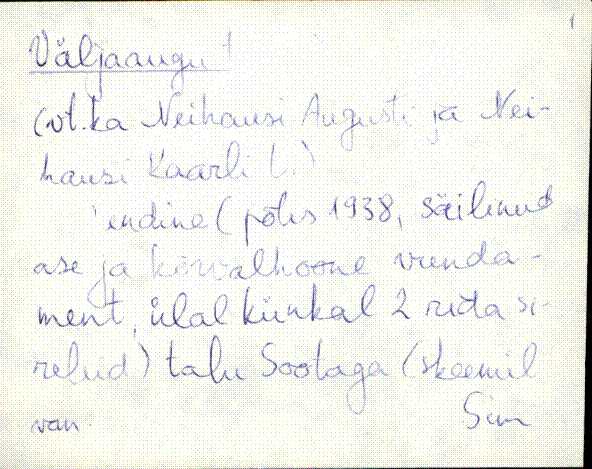 1
Väljaaugu
(vt. ka Neihausi Augusti ja Nei-
hausi Kaarli t.)
endine (põles 1938, säilinud
ase ja kõrvalhoone vunda-
ment, ülal künkal 2 rida si-
relid) talu Sootaga (skeemil
van. Sim